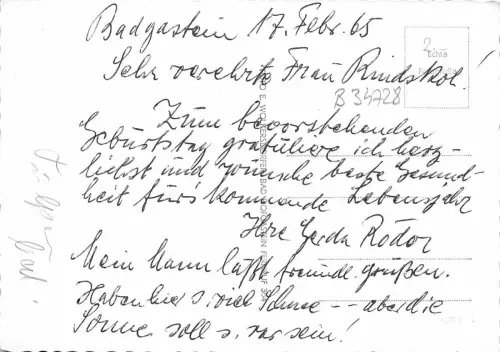 Badgastein 17. Febr. 65
Sehr verehrte Frau Rindskol!
B 34728
Echte
Zum bevorstehenden
Geburtstag gratuliere ich herz-
lichst und wünsche beste Gesund-
heit fürs kommende Lebensjahr
Ihre Gerda Rodor
Mein Mann läßt freundl. grüßen.
Haben hier s. viel Schnee -- aber die
Sonne soll s. rar sein!